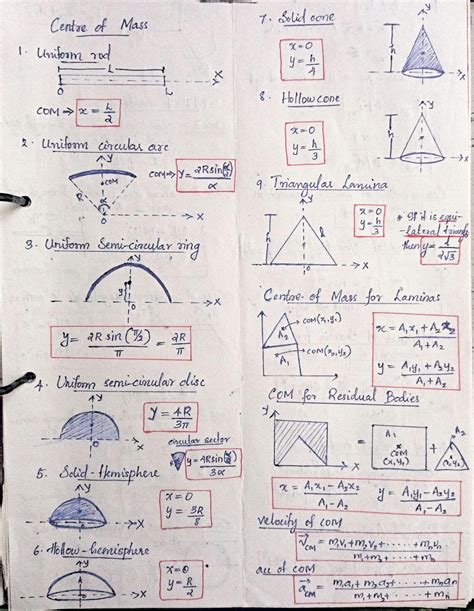 Centre of Mass
1. Uniform rod
L
O
L
X
COM ⇒ x = L/2
2. Uniform circular arc
Y
COM
R
α
O
X
COM → y = 2R sin(α/2)/α
3. Uniform Semi-circular ring
Y
y
O
X
y = 2R sin(π/2)/π = 2R/π
4. Uniform semi-circular disc
Y
O
X
y = 4R/3π
circular sector
y = 4R sin(α/2)/3α
5. Solid-Hemisphere
Y
X
x = 0
y = 3R/8
6. Hollow-hemisphere
Y
O
X
x = 0
y = R/2
7. Solid cone
x = 0
y = h/4
h
Y
X
8. Hollow cone
x = 0
y = h/3
h
Y
X
9. Triangular Lamina
Y
h
l
O
X
x = 0
y = h/3
* If it is equi-
-lateral triangle
then y = l/2√3
Centre of Mass for Laminas
A2
COM(x1y1)
A1
COM(x2y2)
x = A1x1 + A2x2/A1 + A2
y = A1y1 + A2y2/A1 + A2
COM for Residual Bodies
Y
X
=
A1
COM
(x1y1)
+
A2
x = A1x1 − A2x2/A1 − A2
y = A1y1 − A2y2/A1 − A2
velocity of COM
VCM = m1v1 + m2v2 + ...... + mnvn/m1 + m2 + ...... + mn
acc of COM
aCM = m1a1 + m2a2 + .... + mnan/m1 + m2 + .... + mn